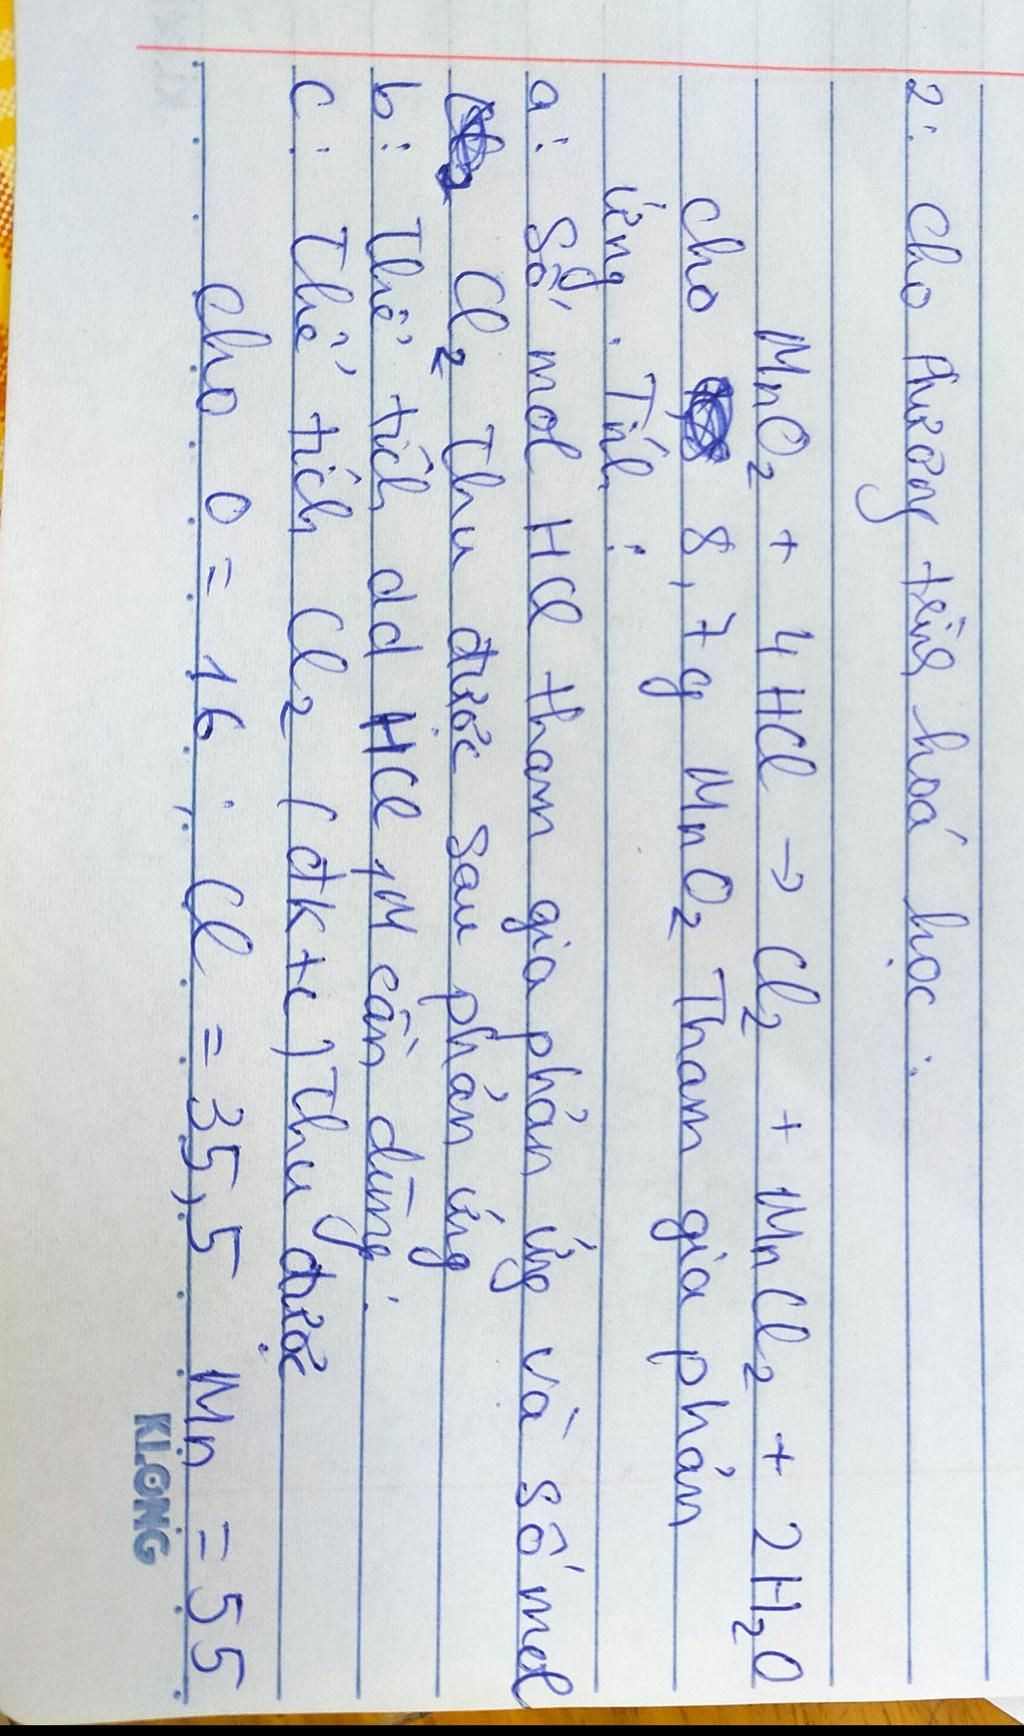 2: Cho phương trình hoá học:
MnO₂ + 4HCl → Cl₂ + MnCl₂ + 2H₂O
Cho 8,7g MnO₂ Tham gia phản
ứng. Tính:
a: Số mol HCl tham gia phản ứng và số mol
Cl₂ Thu được sau phản ứng
b: Thể tích dd HCl 1M cần dùng.
c: Thể tích Cl₂ (đktc) Thu được
Cho O = 16; Cl = 35,5 Mn = 55
KLONG